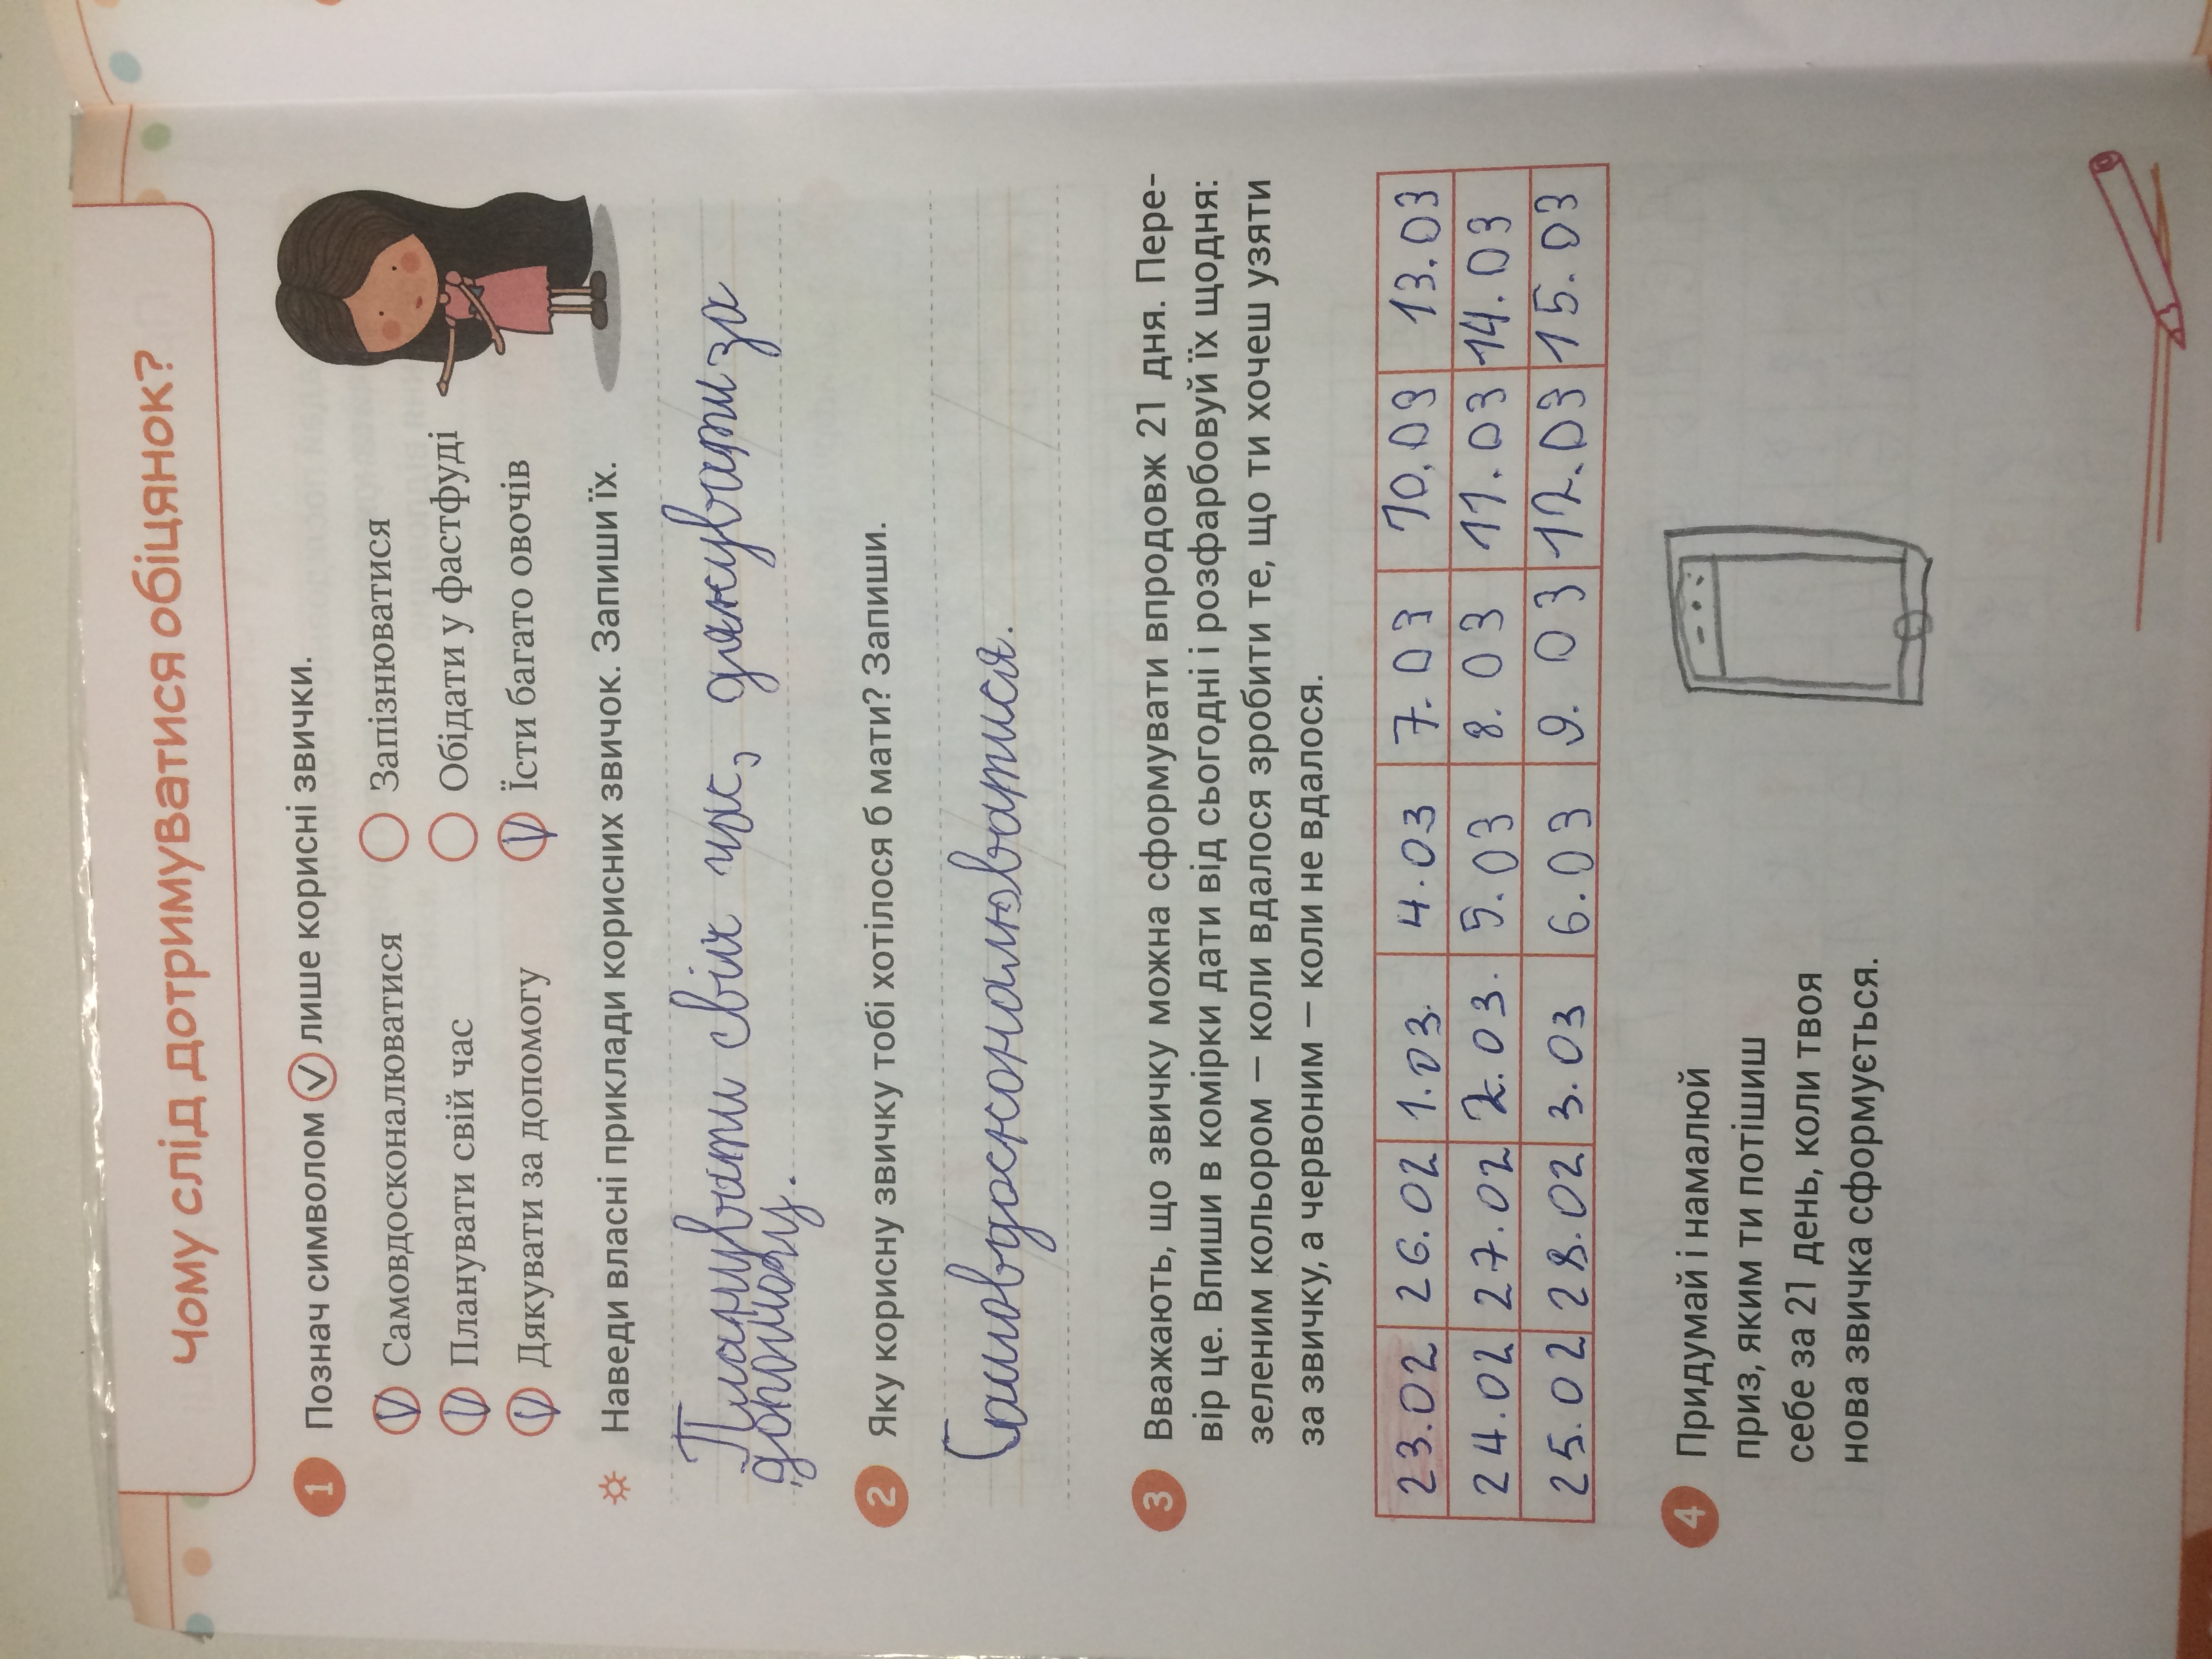 Чому слід дотримуватися обіцянок?
1 Познач символом ✓ лише корисні звички.
V Самовдосконалюватися Запізнюватися
V Планувати свій час Обідати у фастфуді
V Дякувати за допомогу V Їсти багато овочів
Наведи власні приклади корисних звичок. Запиши їх.
Планувати свій час, дякувати за
допомогу.
2 Яку корисну звичку тобі хотілося б мати? Запиши.
Самовдосконалюватися.
3 Вважають, що звичку можна сформувати впродовж 21 дня. Пере-
вір це. Впиши в комірки дати від сьогодні і розфарбовуй їх щодня:
зеленим кольором — коли вдалося зробити те, що ти хочеш узяти
за звичку, а червоним — коли не вдалося.
23.02 26.02 1.03. 4.03 7.03 10.03 13.03
24.02 27.02 2.03. 5.03 8.03 11.03 14.03
25.02 28.02 3.03 6.03 9.03 12.03 15.03
4 Придумай і намалюй
приз, яким ти потішиш
себе за 21 день, коли твоя
нова звичка сформується.